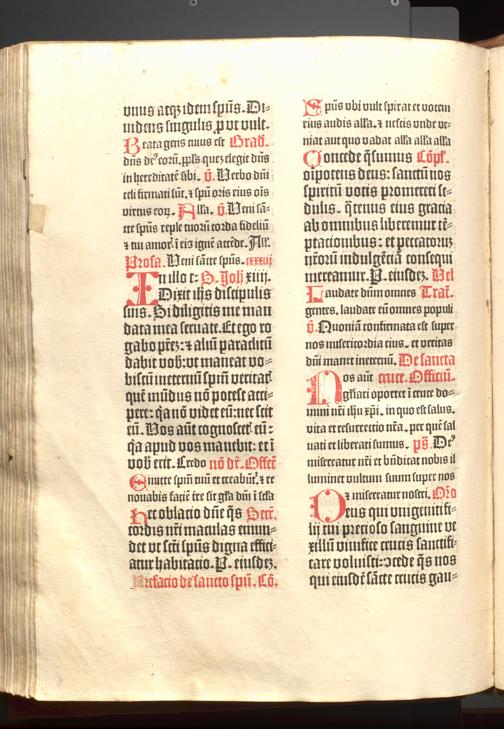 vnus atqꝫ idem spūs. Di⸗
uidens singulis ꝓut vult.
Beata gens cuius est Grad̄.
dn̄s deꝰ eorū. ppl̄s quez elegit dn̄s
in hereditatē sibi. ꝟ. Verbo dn̄i
celi firmati sūt. ⁊ spū oris eius oīs
virtus eorꝫ. Alla. ꝟ. Veni sā⸗
cte spūs reple tuorū corda fideliū
⁊ tui amorꝭ ī eis ignē accēde. All'.
Prosa. Veni sācte spūs. cxxxij
In illo t: S. Joh̄ xiiij.
Dixit ih̄s discipulis
suis. Si diligitis me man
data mea seruate. Et ego ro
gabo prēꝫ: ⁊ aliū paraclitū
dabit vob̄: vt maneat vo⸗
biscū ineternū spūs veritatꝭ
quē mūdus nō potest acci⸗
pere: qꝛ nō videt eū: nec scit
eū. Vos aūt cognoscetꝭ eū:
qꝛ apud vos manebit: et ī
vob̄ erit. Credo nō dr̄. Offer̄
Emitte spm̄ tuū et creabūtꝭ ⁊ re
nouabis faciē tre sit gl̄ia dn̄i ī secl̄a
Hec oblacio dn̄e q̄s Secr̄.
cordis nr̄i maculas emun⸗
det vt sc̄ti spūs digna effici⸗
atur habitacio. P. eiusdeꝫ.
Prefacio de sancto spū. Cō.
Spūs vbi vult spirat et vocem
eius audis all'a. ⁊ nescis vnde ve⸗
niat aut quo vadat all'a all'a all'a
Concede q̄sumus Cōpl̄.
oīpotens deus: sanctū nos
spiritū votis promereri se⸗
dulis. q̄tenus eius gracia
ab omnibus liberemur tē⸗
ptacionibus: et peccatorꝫ
nr̄orū indulgētiā consequi
mereamur. P. eiusdeꝫ. Vel
Laudate dn̄m omnes Tract̄.
gentes. laudate eū omnes populi
ꝟ. Quoniā confirmata est super
nos misericordia eius. et veritas
dn̄i manet ineternū. De sancta
Nos aūt cruce. Officiū.
gl̄iari oportet ī cruce do⸗
mini nr̄i ih̄u xp̄i. in quo est salus.
vita et resurrectio nr̄a. per quē sal
uati et liberati sumus. ps̄. Deꝰ
misereatur nr̄i et bn̄dicat nobis il
luminet vultum suum super nos
et misereatur nostri. Or̄o
Deus qui vnigeniti fi⸗
lij tui precioso sanguine ve
xillū viuifice crucis sanctifi⸗
care voluisti: ꝯcede q̄s nos
qui eiusdē sācte crucis gau⸗